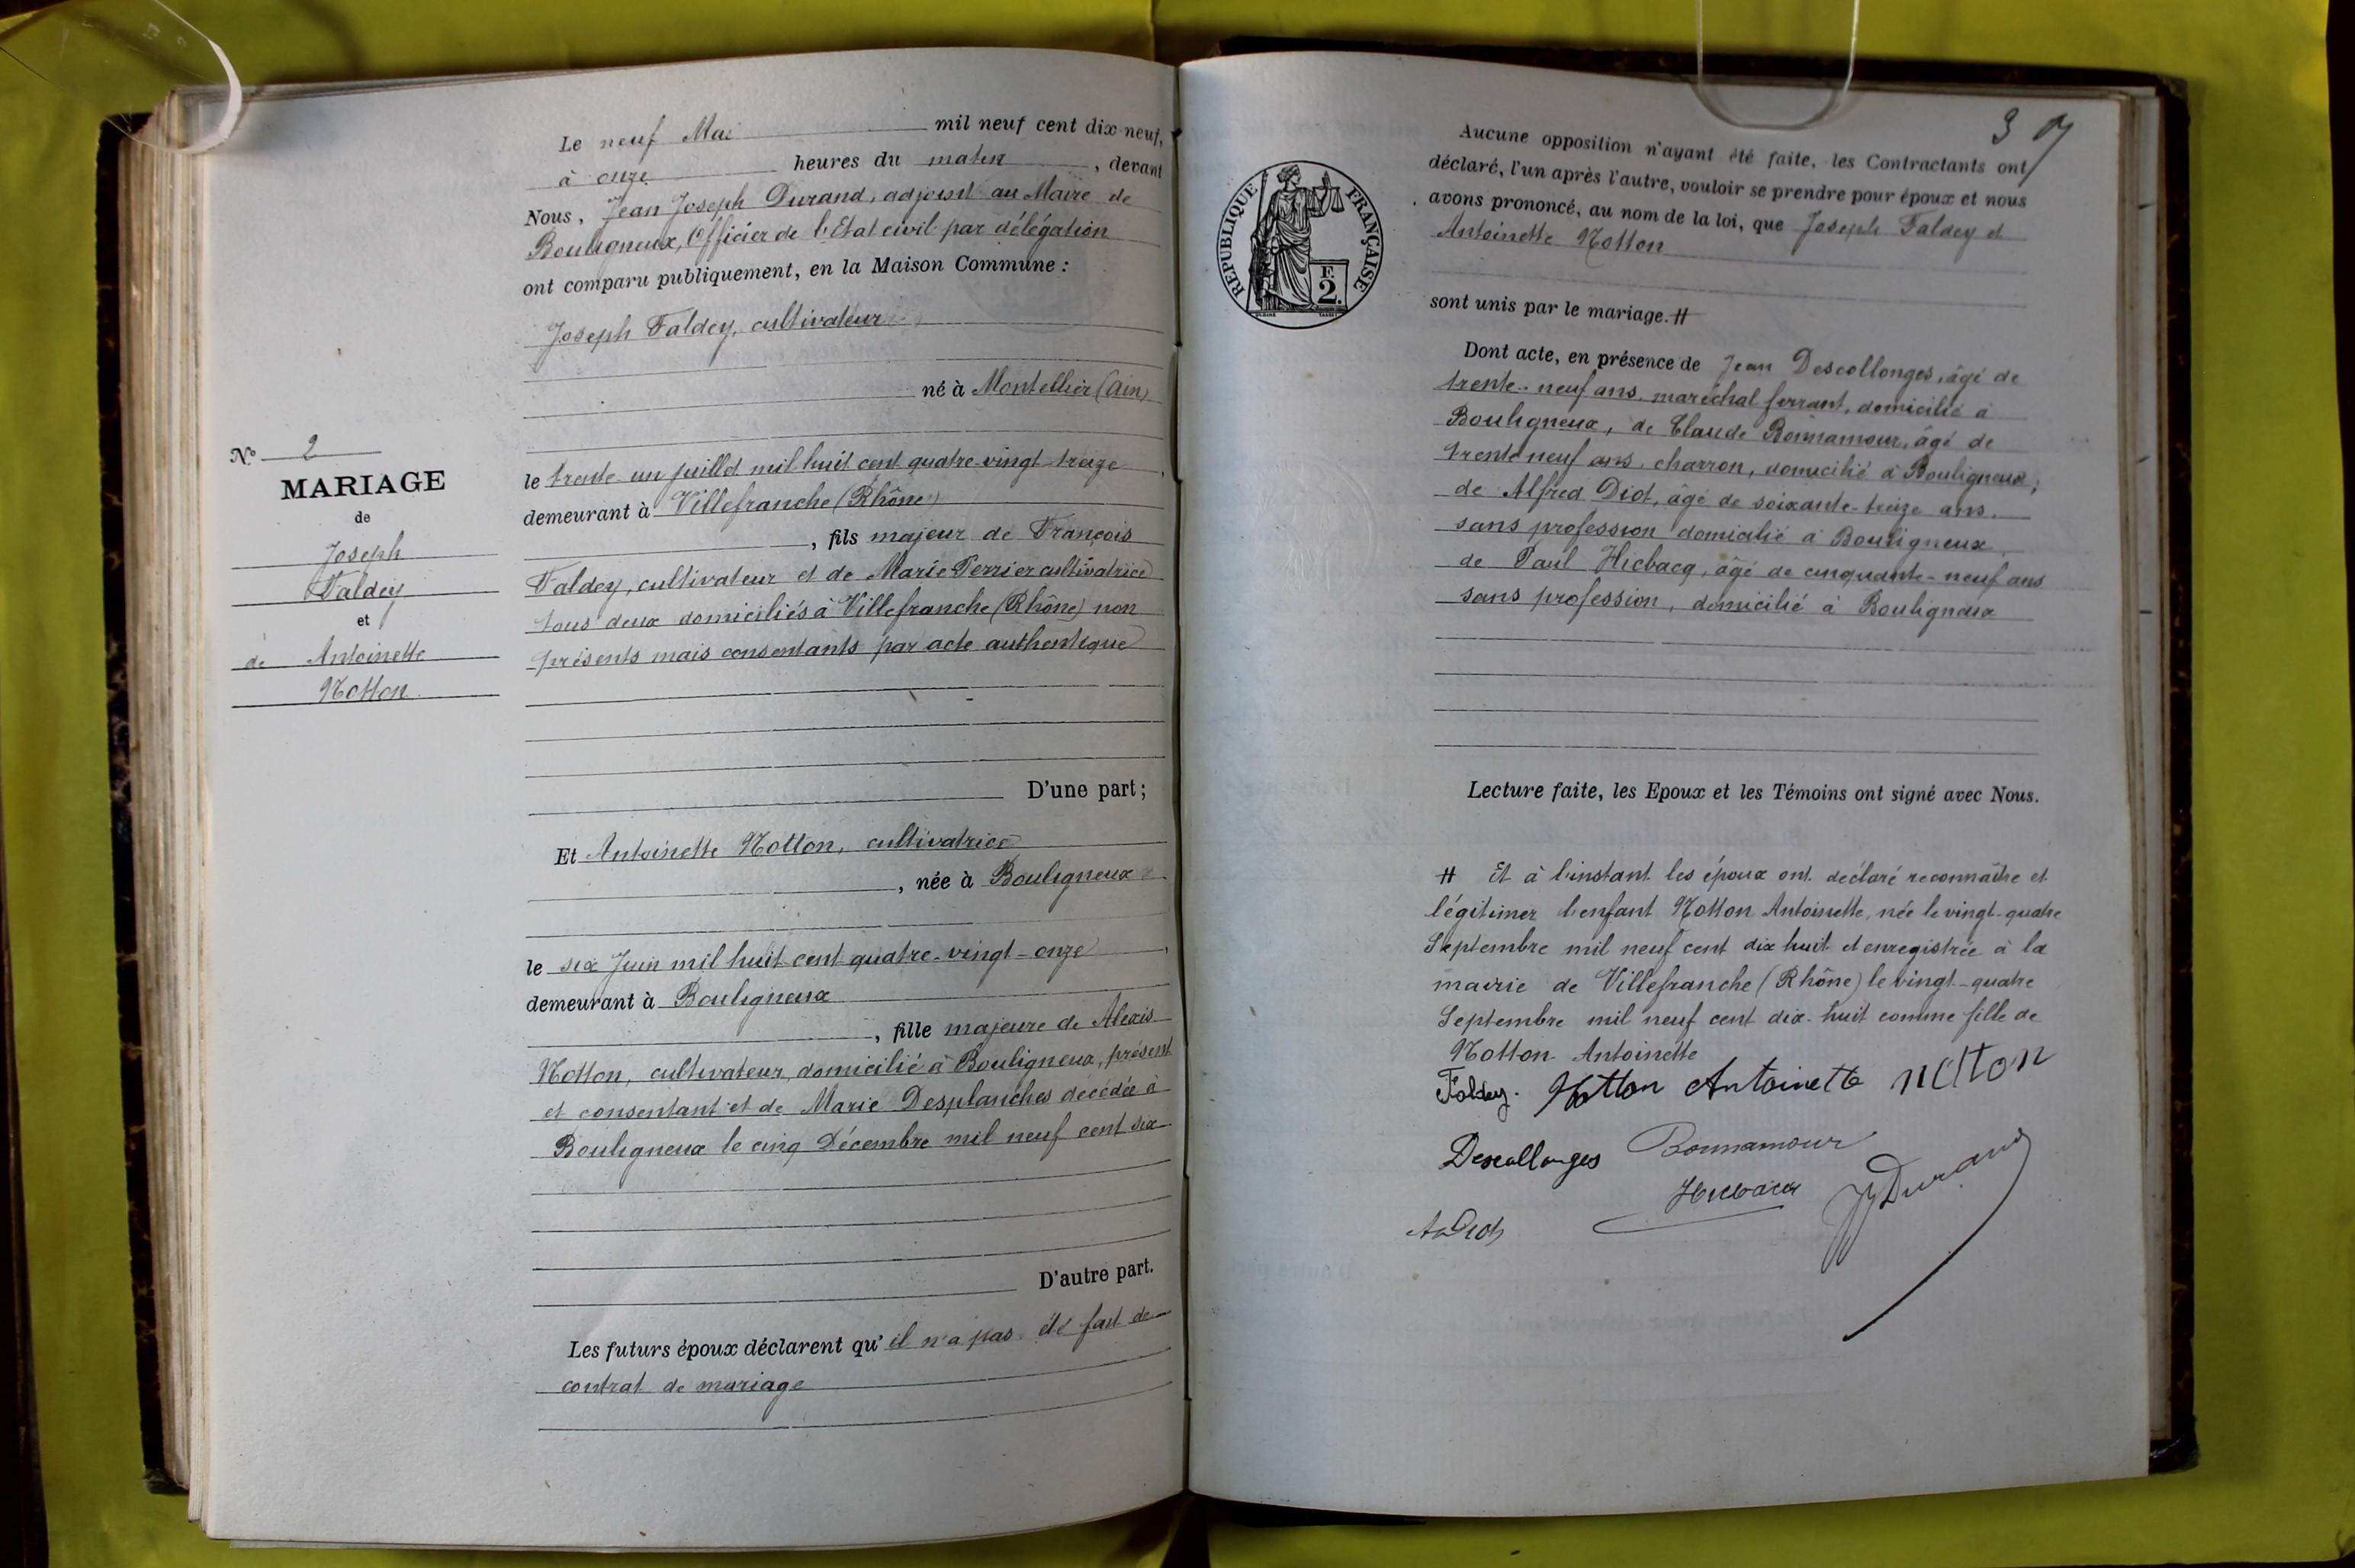 Le neuf Mai mil neuf cent dix-neuf,
à onze heures du matin, devant
Nous, Jean Joseph Durand, adjoint au Maire de
Bouligneux, Officier de l'Etat civil par délégation
ont comparu publiquement, en la Maison Commune :
Joseph Faldey, cultivateur
né à Montellier (Ain)
le trente-un juillet mil huit cent quatre-vingt-treize,
demeurant à Villefranche (Rhône)
, fils majeur de François
Faldey, cultivateur et de Marie Perrier cultivatrice
tous deux domiciliés à Villefranche (Rhône) non
présents mais consentants par acte authentique
D'une part ;
Et Antoinette Notton, cultivatrice
, née à Bouligneux
le six Juin mil huit cent quatre-vingt-onze,
demeurant à Bouligneux
, fille majeure de Alexis
Notton, cultivateur, domicilié à Bouligneux, présent
et consentant et de Marie Desplanches décédée à
Bouligneux le cinq Décembre mil neuf cent six
D'autre part.
Les futurs époux déclarent qu'il n'a pas été fait de
contrat de mariage
N° 2
MARIAGE
de
Joseph
Faldey
et
de Antoinette
Notton
3
RÉPUBLIQUE FRANÇAISE
F.
2.
Aucune opposition n'ayant été faite, les Contractants ont
déclaré, l'un après l'autre, vouloir se prendre pour époux et nous
avons prononcé, au nom de la loi, que Joseph Faldey et
Antoinette Notton
sont unis par le mariage. #
Dont acte, en présence de Jean Descollonges, âgé de
trente-neuf ans, maréchal ferrant, domicilié à
Bouligneux, de Claude Bonnamour, âgé de
trente neuf ans, charron, domicilié à Bouligneux,
de Alfred Diot, âgé de soixante-treize ans.
sans profession domicilié à Bouligneux,
de Paul Hicbacq, âgé de cinquante-neuf ans
sans profession, domicilié à Bouligneux
Lecture faite, les Epoux et les Témoins ont signé avec Nous.
# Et à l'instant les époux ont déclaré reconnaître et
légitimer l'enfant Notton Antoinette, née le vingt-quatre
Septembre mil neuf cent dix huit et enregistrée à la
mairie de Villefranche (Rhône) le vingt-quatre
Septembre mil neuf cent dix-huit comme fille de
Notton Antoinette
Faldey. Notton Antoinette notton
Descollonges Bonnamour
Hicbacq JJDurand